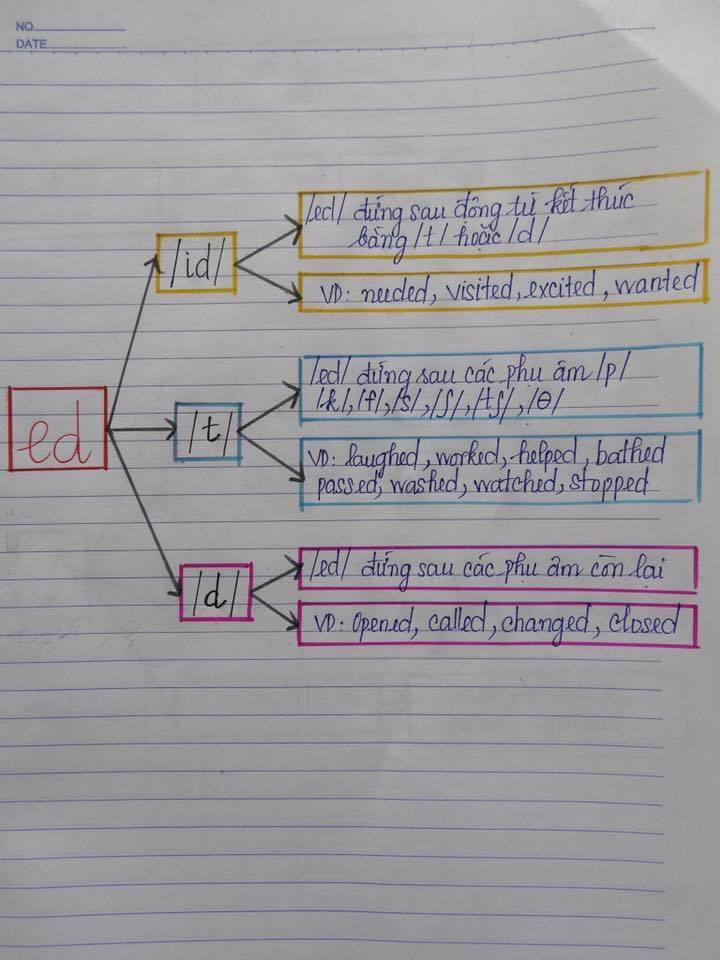 NO
DATE
/ed/ đứng sau động từ kết thúc
bằng /t/ hoặc /d/
/id/
VD: needed, visited, excited, wanted
/ed/ đứng sau các phụ âm /p/
/k/, /f/, /s/, /ʃ/, /tʃ/, /θ/
ed
/t/
VD: laughed, worked, helped, bathed
passed, washed, watched, stopped
/ed/ đứng sau các phụ âm còn lại
/d/
VD: opened, called, changed, closed